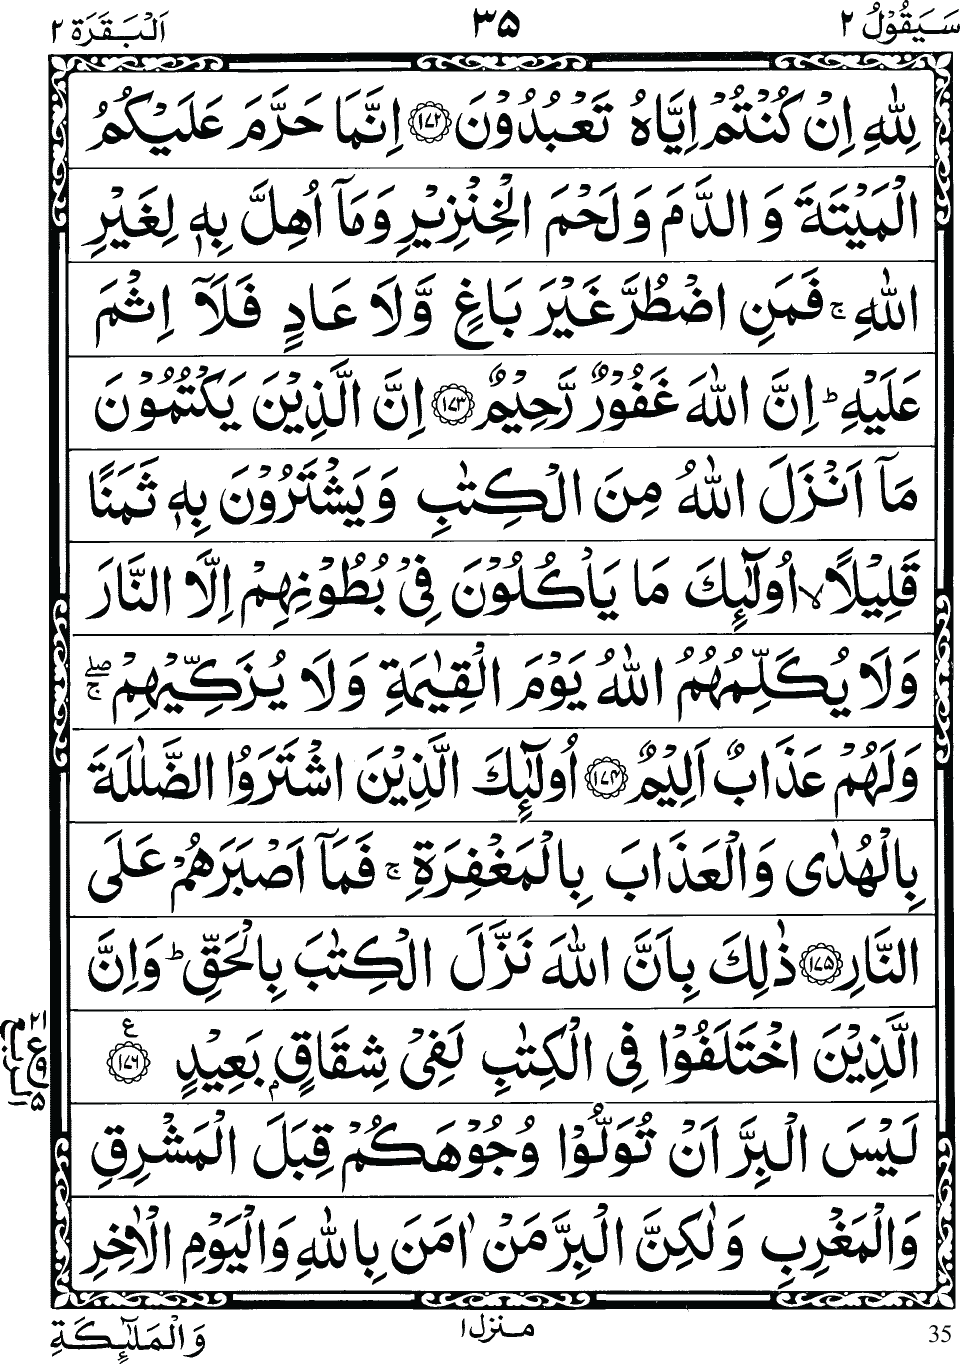 سَيَقُوْلُ ٢ ٣٥ اَلْبَقَرَة ٢
لِلّٰهِ اِنْ كُنْتُمْ اِيَّاهُ تَعْبُدُوْنَ ﴿١٧٢﴾ اِنَّمَا حَرَّمَ عَلَيْكُمُ
الْمَيْتَةَ وَ الدَّمَ وَ لَحْمَ الْخِنْزِيْرِ وَ مَاۤ اُهِلَّ بِهٖ لِغَيْرِ
اللّٰهِ ۚ فَمَنِ اضْطُرَّ غَيْرَ بَاغٍ وَّ لَا عَادٍ فَلَاۤ اِثْمَ
عَلَيْهِ ؕ اِنَّ اللّٰهَ غَفُوْرٌ رَّحِيْمٌ ﴿١٧٣﴾ اِنَّ الَّذِيْنَ يَكْتُمُوْنَ
مَاۤ اَنْزَلَ اللّٰهُ مِنَ الْكِتٰبِ وَ يَشْتَرُوْنَ بِهٖ ثَمَنًا
قَلِيْلًا ۙ اُولٰٓئِكَ مَا يَاْكُلُوْنَ فِيْ بُطُوْنِهِمْ اِلَّا النَّارَ
وَ لَا يُكَلِّمُهُمُ اللّٰهُ يَوْمَ الْقِيٰمَةِ وَ لَا يُزَكِّيْهِمْ ۖۚ
وَ لَهُمْ عَذَابٌ اَلِيْمٌ ﴿١٧۴﴾ اُولٰٓئِكَ الَّذِيْنَ اشْتَرَوُا الضَّلٰلَةَ
بِالْهُدٰى وَ الْعَذَابَ بِالْمَغْفِرَةِ ۚ فَمَاۤ اَصْبَرَهُمْ عَلَى
النَّارِ ﴿١٧۵﴾ ذٰلِكَ بِاَنَّ اللّٰهَ نَزَّلَ الْكِتٰبَ بِالْحَقِّ ؕ وَ اِنَّ
الَّذِيْنَ اخْتَلَفُوْا فِي الْكِتٰبِ لَفِيْ شِقَاقٍۭ بَعِيْدٍ ﴿١٧٦﴾ ع
لَيْسَ الْبِرَّ اَنْ تُوَلُّوْا وُجُوْهَكُمْ قِبَلَ الْمَشْرِقِ
وَ الْمَغْرِبِ وَ لٰكِنَّ الْبِرَّ مَنْ اٰمَنَ بِاللّٰهِ وَ الْيَوْمِ الْاٰخِرِ
35 منزل ١ وَالْمَلٰٓئِكَةِ
الربع